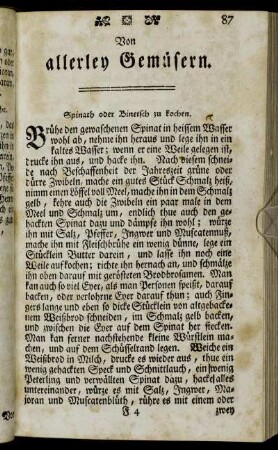 87
Von
allerley Gemüsern.
Spinath oder Binetsch zu kochen.
Brühe den gewaschenen Spinat in heissem Wasser
wohl ab, nehme ihn heraus und lege ihn in ein
kaltes Wasser; wenn er eine Weile gelegen ist,
drucke ihn aus, und hacke ihn. Nach diesem schnei-
de nach Beschaffenheit der Jahrszeit grüne oder
dürre Zwibeln. mache ein gutes Stück Schmalz heiß,
nimm einen Löffel voll Meel, mache ihn in dem Schmalz
gelb, kehre auch die Zwibeln ein paar male in dem
Meel und Schmalz um, endlich thue auch den ge-
hackten Spinat dazu und dämpfe ihn wohl; würze
ihn mit Salz, Pfeffer, Ingwer und Muscatennuß,
mache ihn mit Fleischbrühe ein wenig dünne, lege ein
Stücklein Butter darein, und lasse ihn noch eine
Weile aufkochen; richte ihn hernach an, und schmälze
ihn oben darauf mit gerösteten Brodbrosamen. Man
kan auch so viel Eyer, als man Personen speißt, darauf
backen, oder verlohrne Eyer darauf thun; auch Fin-
gers lange und eben so dicke Stücklein von altgebacke-
nem Weißbrod schneiden, im Schmalz gelb backen,
und zwischen die Eyer auf dem Spinat her stecken.
Man kan ferner nachstehende kleine Würstlein ma-
chen, und auf dem Schüsselrand legen. Weiche ein
Weißbrod in Milch, drucke es wieder aus, thue ein
wenig gehackten Speck und Schnittlauch, ein wenig
Peterling und verwällten Spinat dazu, hacke alles
untereinander, würze es mit Salz, Ingwer, Ma-
joran und Muscatenblüth, rühre es mit einem oder
F 4 zwey